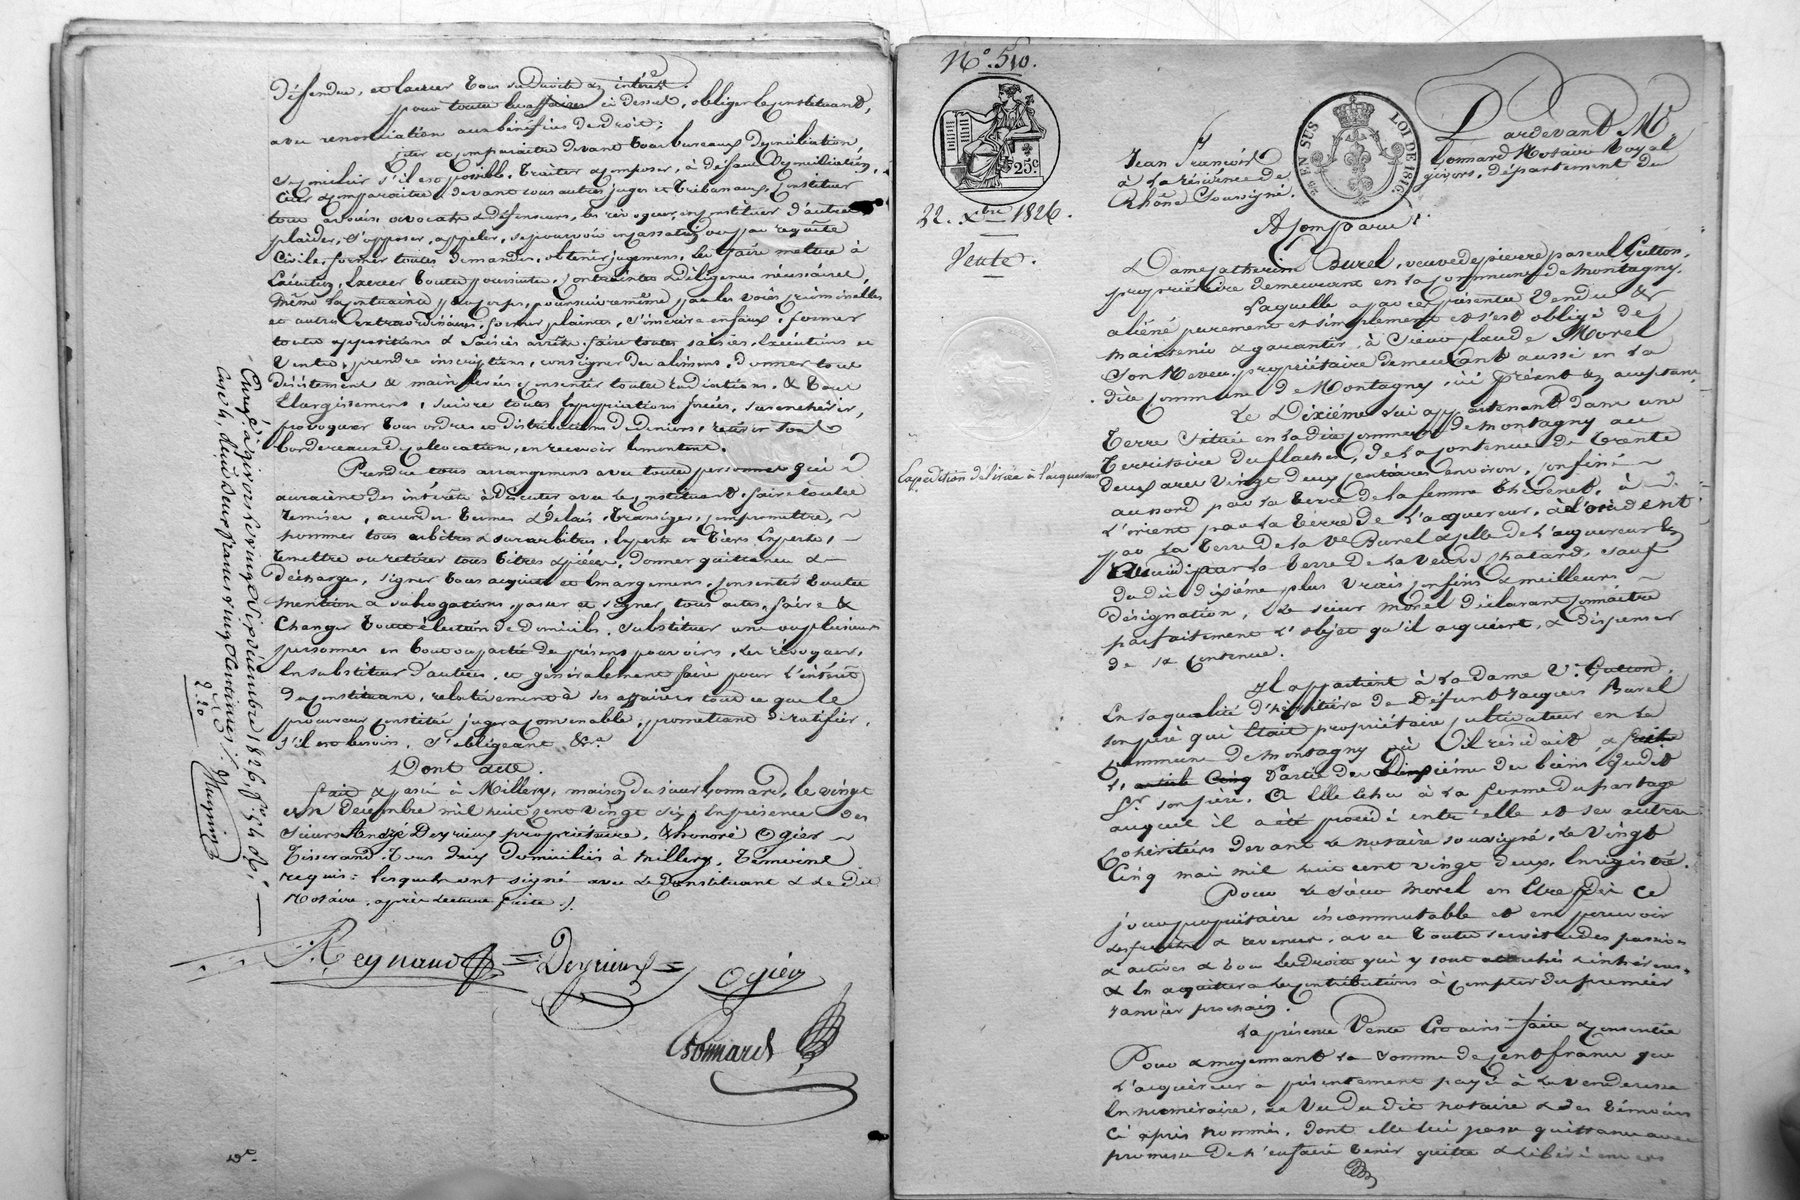 défendre, et laisser tous ses droits et intérêts.
pour toutes les affaires ci dessus, obliger le constituant,
avec renonciation aux bénéfices de droit;
citer et comparaitre devant tous bureaux de conciliation,
se concilier s'il est possible, traiter, composer, à défaut de conciliation,
citer & comparaitre devant tous autres juges et tribunaux, constituer
tous avoués, avocats & défenseurs, les révoquer, en constituer d'autres
plaider, s'opposer, appeler, se pourvoir en cassation ou par requête
civile, former toutes demandes, obtenir jugemens, les faire mettre à
exécution, exercer toutes poursuites, contraintes & diligences nécessaires,
même la contrainte par corps, poursuivre même par les voies criminelles
et autres extraordinaires, former plaintes, s'inscrire en faux, former
toutes oppositions & saisies arrêts, faire toutes saisies, exécutions et
ventes, prendre inscriptions, consigner des alimens, donner tous
désistemens & main levées, consentir toutes radiations, & tous
élargissemens, suivre toutes expropriations forcées, surenchérir,
provoquer tous ordres et distributions de deniers, retirer tous
bordereaux de collocation, en recevoir le montant.
Prendre tous arrangemens avec toutes personnes qui
auraient des intérêts à discuter avec le constituant, faire toutes
remises, accorder termes & délais, transiger, compromettre,
nommer tous arbitres & surarbitres, experts et tiers experts,
remettre ou retirer tous titres & pièces, donner quittances &
décharges, signer tous acquits et émargemens, consentir toutes
mention & subrogations, passer et signer tous actes, faire &
changer toute élection de domicile, substituer une ou plusieurs
personnes en tout ou partie des présens pouvoirs, les révoquer,
en substituer d'autres, et généralement faire pour l'intérêt
du constituant, relativement à ses affaires tout ce que le
procureur constitué jugera convenable, promettant de ratifier,
s'il est besoin, s'obligeant &ra
Dont acte.
Fait & passé à Millery, maison du sieur Gonnard, le vingt
un décembre mil huit cent vingt six, en présence des
sieurs André Deyrieux propriétaire, & honoré Ogier
tisserand, tous deux domiciliés à Millery, témoins
requis: lesquels ont signé avec le constituant & le dit
notaire, après lecture faite ./.
Reynaud = Deyrieux = Ogier
Gonnard
Enreg.é à givors le vingt six décembre 1826, f.° 54 r.°
case 4, deux deux francs vingt centimes ./.
2.20
N° 510.
25c
22. Xbre 1826.
Vente.
Expédition délivrée à l'acquereur
25 EN SUS LOI DE 1816
Pardevant Me
Jean François Gonnard Notaire Royal
à la résidence de givors, département du
Rhône Soussigné.
A Comparu:
Dame Catherine Burel, veuve de pierre pascal Guitton,
propriétaire demeurant en la commune de Montagny.
Laquelle a par ces présentes vendu &
aliéné purement et simplement et s'est obligé de
maintenir & garantir, à Sieur plaude Morel
son Neveu, propriétaire demeurant aussi en la
dite commune de Montagny, ici présent & acceptant,
Le dixième lui appartenant dans une
terre située en la dite commune de Montagny au
territoire du flachet, de la contenue de trente
deux ares vingt deux centiares environ, confiné
au nord par la terre de la femme Thevenet, à
l'orient par la terre de l'acquereur, à l'occident
par la terre de la Ve Burel & celle de l'acquereur &
au midi par la terre de la veuve Chatard, sauf
du dit dixième plus vrais confins & meilleurs
désignation, le sieur Morel déclarant connaitre
parfaitement l'objet qu'il acquiert, & dispenser
de la contenue.
Il appartient à la dame Ve Guitton,
en sa qualité d'héritière de défunt Jacques Burel
son père qui était propriétaire cultivateur en la
commune de Montagny où il résidait, &
partie du dixième des biens dudit
Sr. son père, à elle échu à la forme du partage
auquel il a été procédé entre elle et ses autres
cohéritiers devant le notaire soussigné, le vingt
cinq mai mil huit cent vingt deux, enregistré.
Pour le sieur Morel en être dès ce
jour propriétaire incommutable et en percevoir
les fruits & revenus, avec toutes servitudes passives
& actives & tous les droits qui y sont attachés & inhérens,
& en acquitter les contributions à compter du premier
janvier prochain.
La présente Vente est ainsi faite & consentie
Pour & moyennant la somme de cent francs que
l'acquéreur a présentement payé à la venderesse
en numéraire, au vu du dit notaire & des témoins
ci après nommés, dont elle lui passe quittance avec
promesse de l'en faire tenir quitte & libéré envers